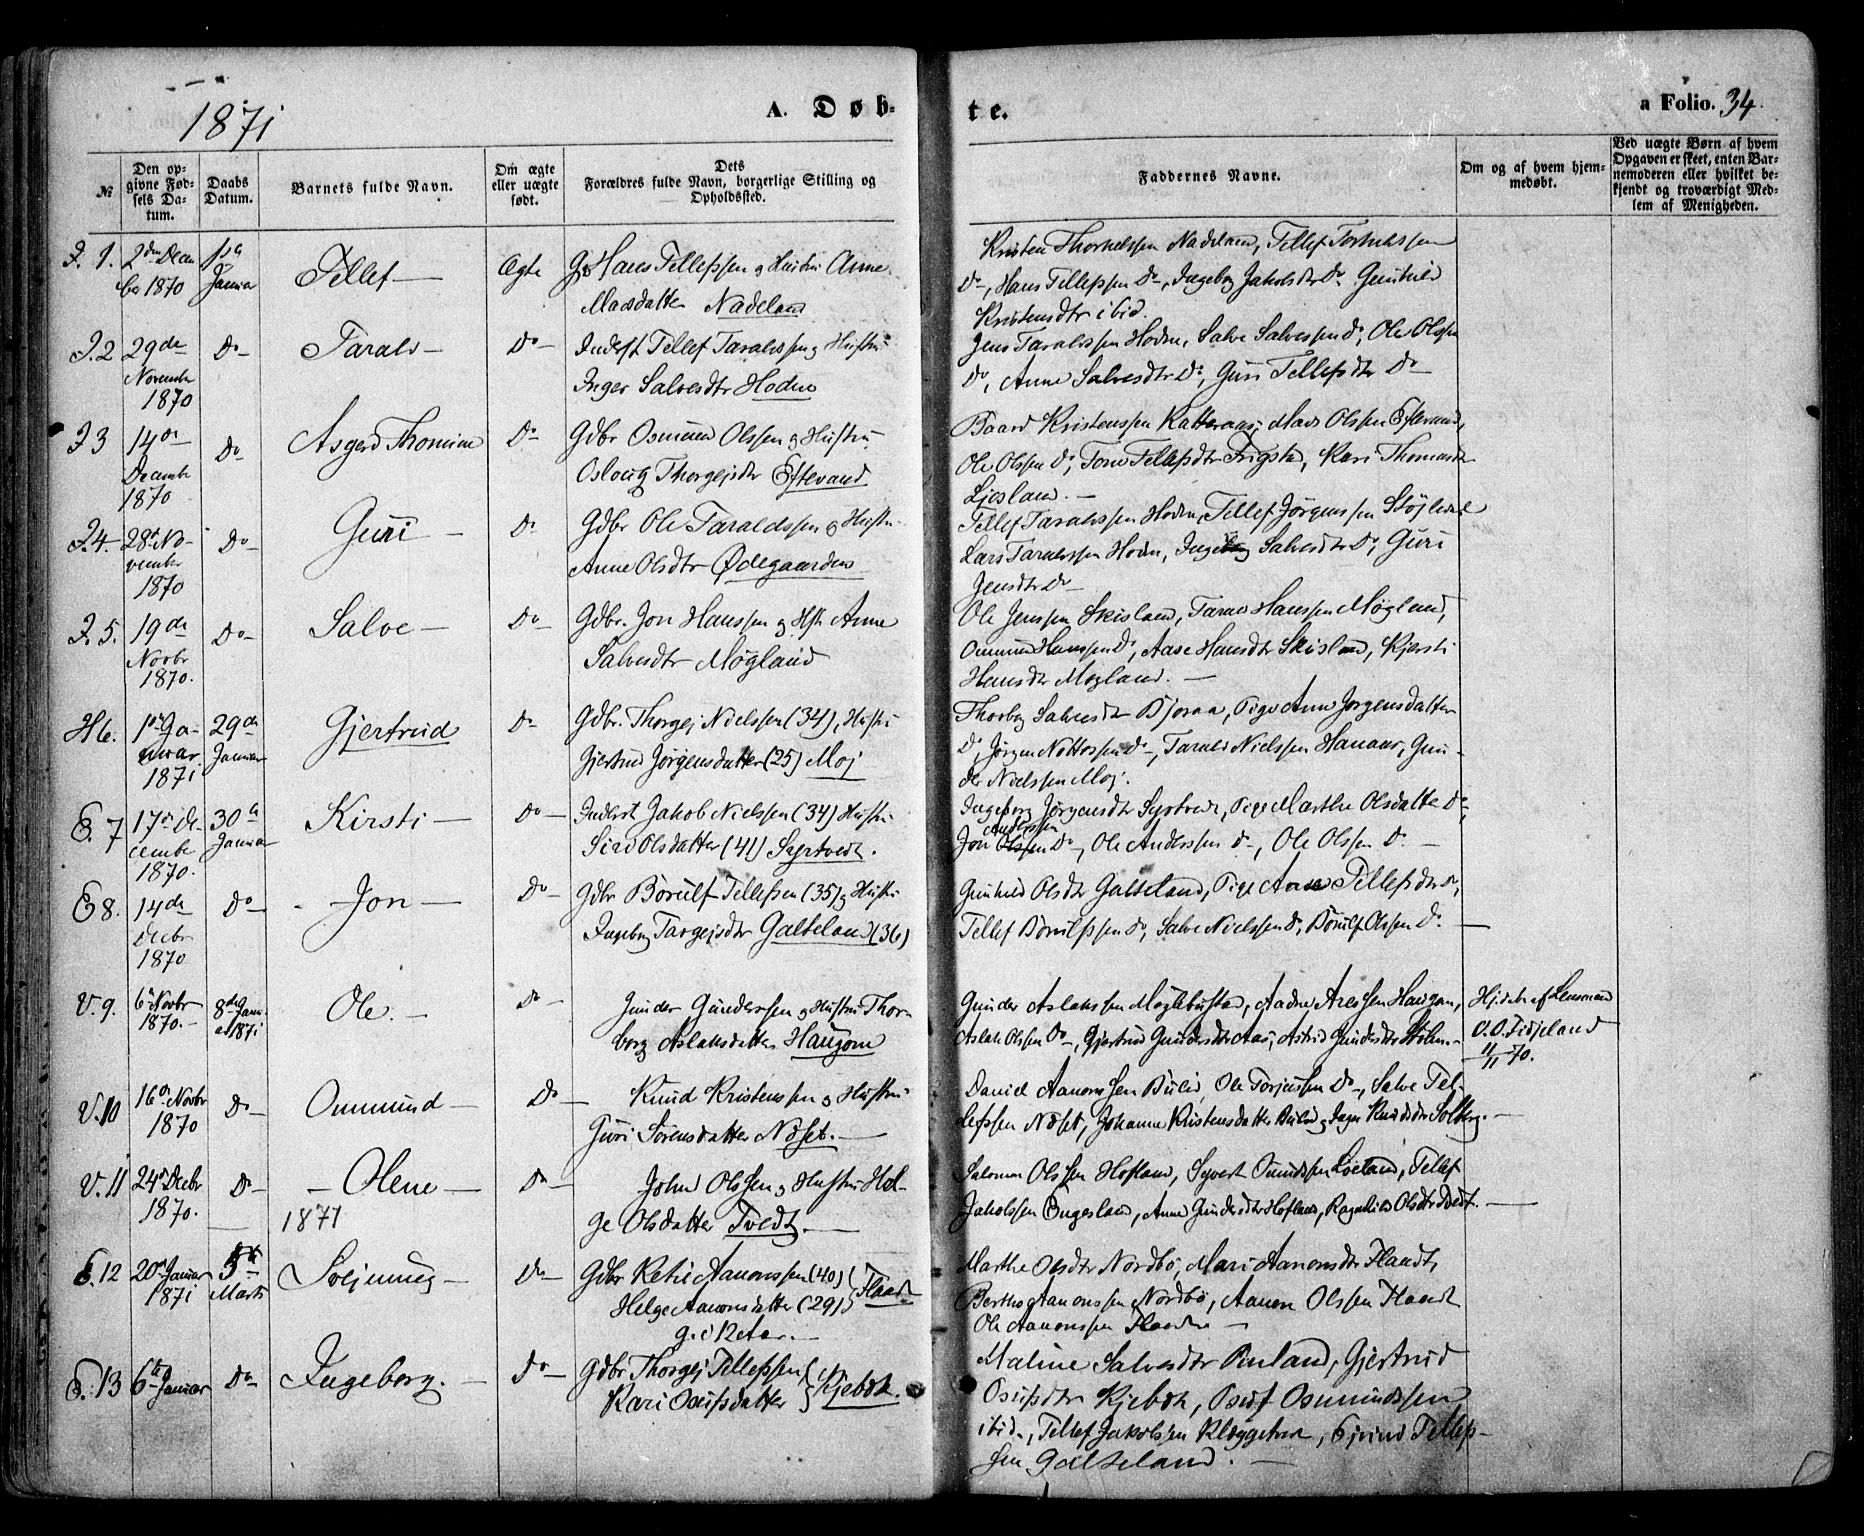 1871
A. Døb-
te.
a Folio. 34.
№
Den op-
givne Fød-
sels Da-
tum.
Daabs
Datum.
Barnets fulde Navn.
Om ægte
eller uægte
født.
Dets
Forældres fulde Navn, borgerlige Stilling og
Opholdssted.
Faddernes Navne.
Om og af hvem hjem-
medøbt.
Ved uægte Børn af hvem
Opgaven er skeet, enten Bar-
nemoderen eller hvilket be-
kjendt og troværdigt Med-
lem af Menigheden.
1. 2den Decem
ber 1870
Januar
Tellef
Ægte
Hans Tellefssen og Hustru Anne
Madsdatter Nadeland
Kristen Thorkelssen Nadeland, Tellef
Do, Hans Tellefssen Do, Ingeborg Jakobsdtr Do Gunhild
Kristensdtr ibid.
2 29de
November
1870
Do
Tarald
Do
Inderst Tellef Taraldssen og Hustru
Inger Salvesdtr Hodne
Jens Taraldssen Hodne, Salve Salvessen Do, Ole Olssen
Do, Anne Salvesdtr Do, Guri Tellefsdtr Do
3 14de
December
1870
Do
Asgerd Thomine
Do
Gdbr Osmund Olssen og Hustru
Oslaug Thorgejsdtr Eftevand
Baard Kristenssen Katteraas, Mads Olssen Eftevand,
Ole Olssen Do, Tone Tellefsdtr Frigstad, Kari Thomasdtr
Ljosland.
4. 28de No-
vember
1870
Do
Guri
Do
Gdbr Ole Taraldssen og Hustru
Anne Olsdtr Ødegaardens
Tellef Taraldssen Hodne, Tellef Jørgenssen
Lars Taraldssen Hodne, Ingeborg Salvesdtr Do, Guri
Jensdtr Do
5. 19de
Novbr
1870.
Do
Salve
Do
Gdbr. Jon Hanssen og Hstr Anne
Salvesdtr Møgland
Ole Jenssen Skisland, Tarald Hanssen Møgland,
Ommund Hanssen Do, Aase Hansdtr Skisland, Kjersti
Hansdtr Møgland.
H6. 1ste Ja-
nuar
1871
29de
Januar
Gjertrud
Do
Gdbr. Thorgej Nielssen (34), Hustru
Gjertrud Jørgensdatter (25) Moj
Thorbor Salvesdtr Bjoraa, Pige Anne Jørgensdatter
Do, Jørgen Do, Tarald Nielssen Hanaas, Gun-
der Nielssen Moj.
E. 7 17de De-
cember
1870.
30te
Januar
Kirsti
Do
Inderst Jakob Nielssen (34) Hustru
Siri Olsdatter (41) Syrtvedt.
Ingeborg Jørgensdtr Syrtvedt, Pige Marthe Olsdatter Do,
Anderssen
Jon Olssen Do, Ole Anderssen Do, Ole Olssen Do.
E 8. 14de
Decbr
1870
Do
Jon
Do
Gdbr Borulf Tellefssen (35) og Hustru
Ingeborg Targejsdtr Galteland (36)
Gunhild Olsdtr Galteland, Pige Anne Tellefsdtr Do,
Tellef Borulfssen Do, Salve Nielssen Do, Borulf Olssen Do.
V. 9. 6te Novbr
1870.
8de Janu-
ar 1871
Ole.
Do
Gunder Gunderssen og Hustru Thor-
borg Aslaksdatter Haugom
Gunder Aslakssen Møglebustad, Aadne Haugom,
Aslak Olssen Do, Gjertrud Gundersdtr Aas, Astrid Gundersdtr
Hjdøbt af Lensmand
O. O. Fidjeland
11/11 70.
V. 10 16de Novbr
1870
Do
Ommund
Do
Knud Kristenssen og Hustru
Guri Sørensdatter Nøset.
Daniel Aanonssen Bulid, Ole Torjussen Do, Salve Tel-
lefssen Nøset, Johanne Kristensdatter Bulid, Inger Knudsdtr Solberg.
V. 11 24de Decbr
1870.
Do
Olene
1871
Do
John Olssen og Hustru Hel-
ge Olsdatter Tvedt.
Salomon Olssen Hofland, Syvert Løeland, Tellef
Jakobssen Engesland, Anne Gundersdtr Hofland, Ragnhild Olsdtr Tvedt.
E. 12 20de Januar
1871
5te
Marts
Svejnung
Do
Gdbr Ketil Aanonssen (40)
Helge Aanonsdatter (29) Flaadt
Marthe Olsdtr Nordbø, Mari Aanonsdtr Flaadt,
Aanonssen Nordbø, Aanon Olssen Flaadt
Ole Aanonssen
E. 13 6te Januar
Do
Ingeborg.
Do
Gdbr Thorgej Tellefssen
Kari Osufsdatter Kjebæk.
Maline Salvesdtr Gjertrud
Osufsdtr Kjebæk, Osuf Osmundssen
ibid., Tellef Jakobssen Klæggetvet, Ejvind Tellefs-
sen Galteland.